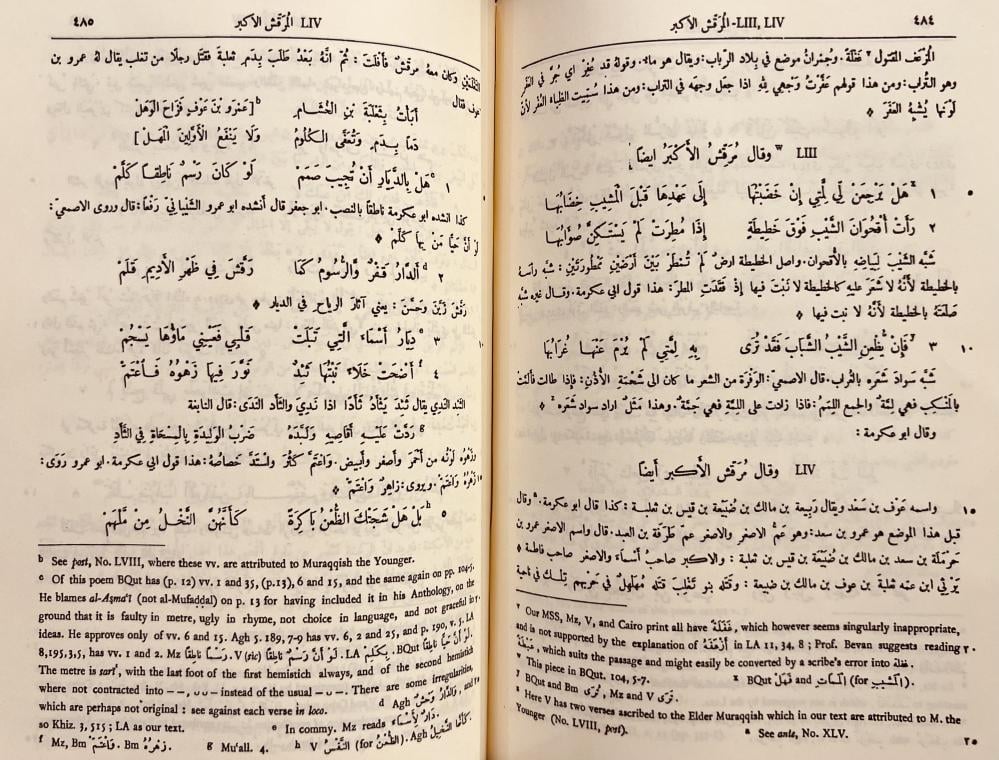 ٤٨٤ المُرَقّش الأكبر -LIII, LIV
المُرْعَف المَقتول ʳ غَفْلَةً. وجُمْرانُ موضع في بلاد الرِّباب: ويقال هو ماء. وقوله قد عُفِرَ اي جُرَّ في العَفَر
وهو التُّراب: ومن هذا قولهم عَفَّرْتُ وَجْهِي لِلّٰهِ اذا جعل وجهه في التراب: ومن هذا سُمِّيَت الظِباء العُفْر لأنَّ
لَوْنَها يُشْبِهُ العَفَرَ ❊
LIII ʷ وقال مُرَقِّش الأَكْبَرُ ايضًا
١ ˣ هَلْ يَرْجِعَنْ لِي لِمَّتِي إِنْ خَضَبْتُهَا إِلَى عَهْدِهَا قَبْلَ الْمَشِيبِ خِضَابُهَا
٢ رَأَتْ أُقْحُوَانَ الشَّيْبِ فَوْقَ خَطِيطَةٍ إِذَا مُطِرَتْ لَمْ يَسْتَكِنَّ صُؤَابُهَا
شَبَّه الشَّيْبَ لبَياضِهِ بالأُقحوان. واصل الخطيطة ارضٌ لم تُمْطَرْ بَيْنَ أَرْضَيْنِ مَمْطُورَتَيْنِ: شبَّه رأسَهُ
بالخطيطة لأنَّهُ لا شَعَرَ عليهِ كالخطيطة لا نَبْتَ فيها إذْ فَقَدَتِ المطرَ: هذا قول ابي عكرمة. وقال غيره شبَّه
صَلَعَتَهُ بالخطيطة لأنَّهُ لا نبت فيها ❊
٣ ʸ فَإِنْ يُظْعِنِ الشَّيْبُ الشَّبَابَ فَقَدْ تُرَى بِهِ لِمَّتِي لَمْ يُرْمَ عَنْهَا غُرَابُهَا ١٠
شبَّه سَوادَ شَعَرِه بالغُراب. قال الاصمعيّ: الوَفْرَة من الشعر ما كان الى شَحْمَةِ الأُذُنِ: فإذا طالت فألَمَّتْ
بالمَنْكِب فهي لِمَّةٌ والجمع اللِمَمُ: فاذا زادت على اللِمَّةِ فهي جُمَّةٌ. وهذا مَثَلٌ اراد سوادَ شَعَره ᶻ ❊
وقال ابو عكرمة:
LIV وقال مُرَقّش الأكبر أيضًا
واسمه عَوْف بن سَعْد ويقال رَبِيعة بن مالك بن ضُبَيْعَة بن قيس بن ثعلبة: كذا قال ابو عكرمة. ᵃ وقال ١٥
قبل هذا الموضع هو عمرو بن سعد: وهو عَمُّ الاصغر والاصغر عمّ طَرَفَة بن العبد. قال واسم الاصغر عمرو بن
حَرْمَلَة بن سعد بن مالك بن ضُبَيْعَة بن قيس بن ثعلبة: والاكبر صاحبُ أَسْماءَ والاصغر صاحب فاطمة ❊
يَرْثي ابن عمّه ثعلبةَ بن عوف بن مالك بن ضبيعة: وقتله بنو تَغْلِبَ قتله مُهَلْهِلٌ في حَرْبِهِم تِلْكَ في ناحية
ᵛ Our MSS, Mz, V, and Cairo print all have غَفْلَةً, which however seems singularly inappropriate,
and is not supported by the explanation of أَرْعَفْتُهُ in LA 11, 34. 8; Prof. Bevan suggests reading
, which suits the passage and might easily be converted by a scribe's error into غفلة.
ʷ This piece in BQut. 104, 5-7. ˣ BQut فَهَلْ and (for الْمَشِيب).
ʸ BQut and Bm تُرَى, Mz and V تَرَى.
ᶻ Here V has two verses ascribed to the Elder Muraqqish which in our text are attributed to M. the
Younger (No. LVIII, post). ᵃ See ante, No. XLV. ٢٥
LIV المُرَقّش الأكبر ٤٨٥
التَّغْلَمَيْنِ وكان معه مرقّشٌ فأفلَتَ: ثُمَّ انَّهُ بَعْدُ طَلَبَ بِدَمِ ثعلبةَ فقتل رجلًا من تغلب يقال لهُ عمرو بن
عوف فقال
أَبَأْتُ بِثَعْلَبَةَ بنِ الخُشَـ ـامِ ᵇ [عَمْرَو بنَ عَوْفٍ فَزَاحَ الوَهَلْ
دَمًا بِدَمٍ وتُعَفَّى الكُلُومُ ولا يَنْفَعُ الأَوَّلِينَ المَهَلْ]
١ ᶜ هَلْ بِالدِّيَارِ أَنْ تُجِيبَ صَمَمْ لَوْ كَانَ رَسْمٌ نَاطِقًا كَلَّمْ
كذا انشده ابو عكرمة ناطقًا بالنصب. ابو جعفر قال أنشده ابو عمرو الشَّيْبانيّ رَفْعًا: قال وروى الاصمعيّ:
لَوْ أَنَّ حَيًّا مَنْ بِها كَلَّمْ ❊
٢ ᵈ أَلدَّارُ قَفْرٌ وَالرُّسُومُ كَمَا رَقَّشَ فِي ظَهْرِ الأَدِيمِ قَلَمْ
رقَّشَ زَيَّنَ وحَسَّنَ: يعني آثارَ الرياح في الديار ❊
٣ ᵉ دِيَارُ أَسْمَاءَ الَّتِي تَبَلَتْ قَلْبِي فَعَيْنِي مَاؤُهَا يَسْجُمْ ١٠
٤ ᶠ أَضْحَتْ خَلَاءً نَبْتُهَا ثَئِدٌ نَوَّرَ فِيهَا زَهْوُهُ فَاعْتَمّْ
الثَئِدُ النَدي يقال ثَئِدَ يَثْأَدُ ثَأَدًا اذا نَدِيَ والثَأَد النَدَى: قال النابغة
ᵍ رَدَّتْ عَلَيْهِ أَقَاصِيهِ وَلَبَّدَهُ ضَرْبُ الوَلِيدَةِ بِالمِسْحَاةِ فِي الثَّأَدِ
وزَهْوُهُ لَوْنُه من أحْمَرَ وأصفر وأبيض. واعْتَمَّ كَثُرَ واستَدَّ خَصاصُهُ: هذا قول ابي عكرمة. ابو عمرو رَوَى:
زَهْرُهُ واعتَمَّ. ويروى: زاهِرٌ واعتمّ ❊
٥ ʰ بَلْ هَلْ شَجَتْكَ الظُّعْنُ بَاكِرَةً كَأَنَّهُنَّ النَّخْلُ مِنْ مَلْهَمْ
ᵇ See post, No. LVIII, where these vv. are attributed to Muraqqish the Younger.
ᶜ Of this poem BQut has (p. 12) vv. 1 and 35, (p.13), 6 and 15, and the same again on pp. 104-5.
He blames al-Aṣmaʿī (not al-Mufaḍḍal) on p. 13 for having included it in his Anthology, on the
ground that it is faulty in metre, ugly in rhyme, not choice in language, and not graceful in
ideas. He approves only of vv. 6 and 15. Agh 5. 189, 7-9 has vv. 6, 2 and 25, and p. 190, v. 5. LA
8,195,3,5, has vv. 1 and 2. Mz رَسْمًا نَاطِقًا. V (sic) لَوْ أَنَّ رَسْمٌ نَاطِقًا. LA بِكَلِيمْ. BQut لَوْ أَنَّ حَيًّا نَاطِقًا.
The metre is sarīʿ, with the last foot of the first hemistich always, and of the second hemistich
where not contracted into – –, ᴗᴗ– instead of the usual – ᴗ –. There are some irregularities,
which are perhaps not original: see against each verse in loco. ᵈ Agh وَالدَّارُ وَحْشٌ, and
so Khiz. 3, 515; LA as our text. ᵉ In commy. Mz reads دَارٌ لِأَسْمَاءَ.
ᶠ Mz, Bm فَاعْتَمّْ. Bm زَهْرُهُ. ᵍ Muʿall. 4. ʰ V النَّفْسَ (for الظُّعْنُ). Agh كَأَنَّهَا النَّخِيلُ.